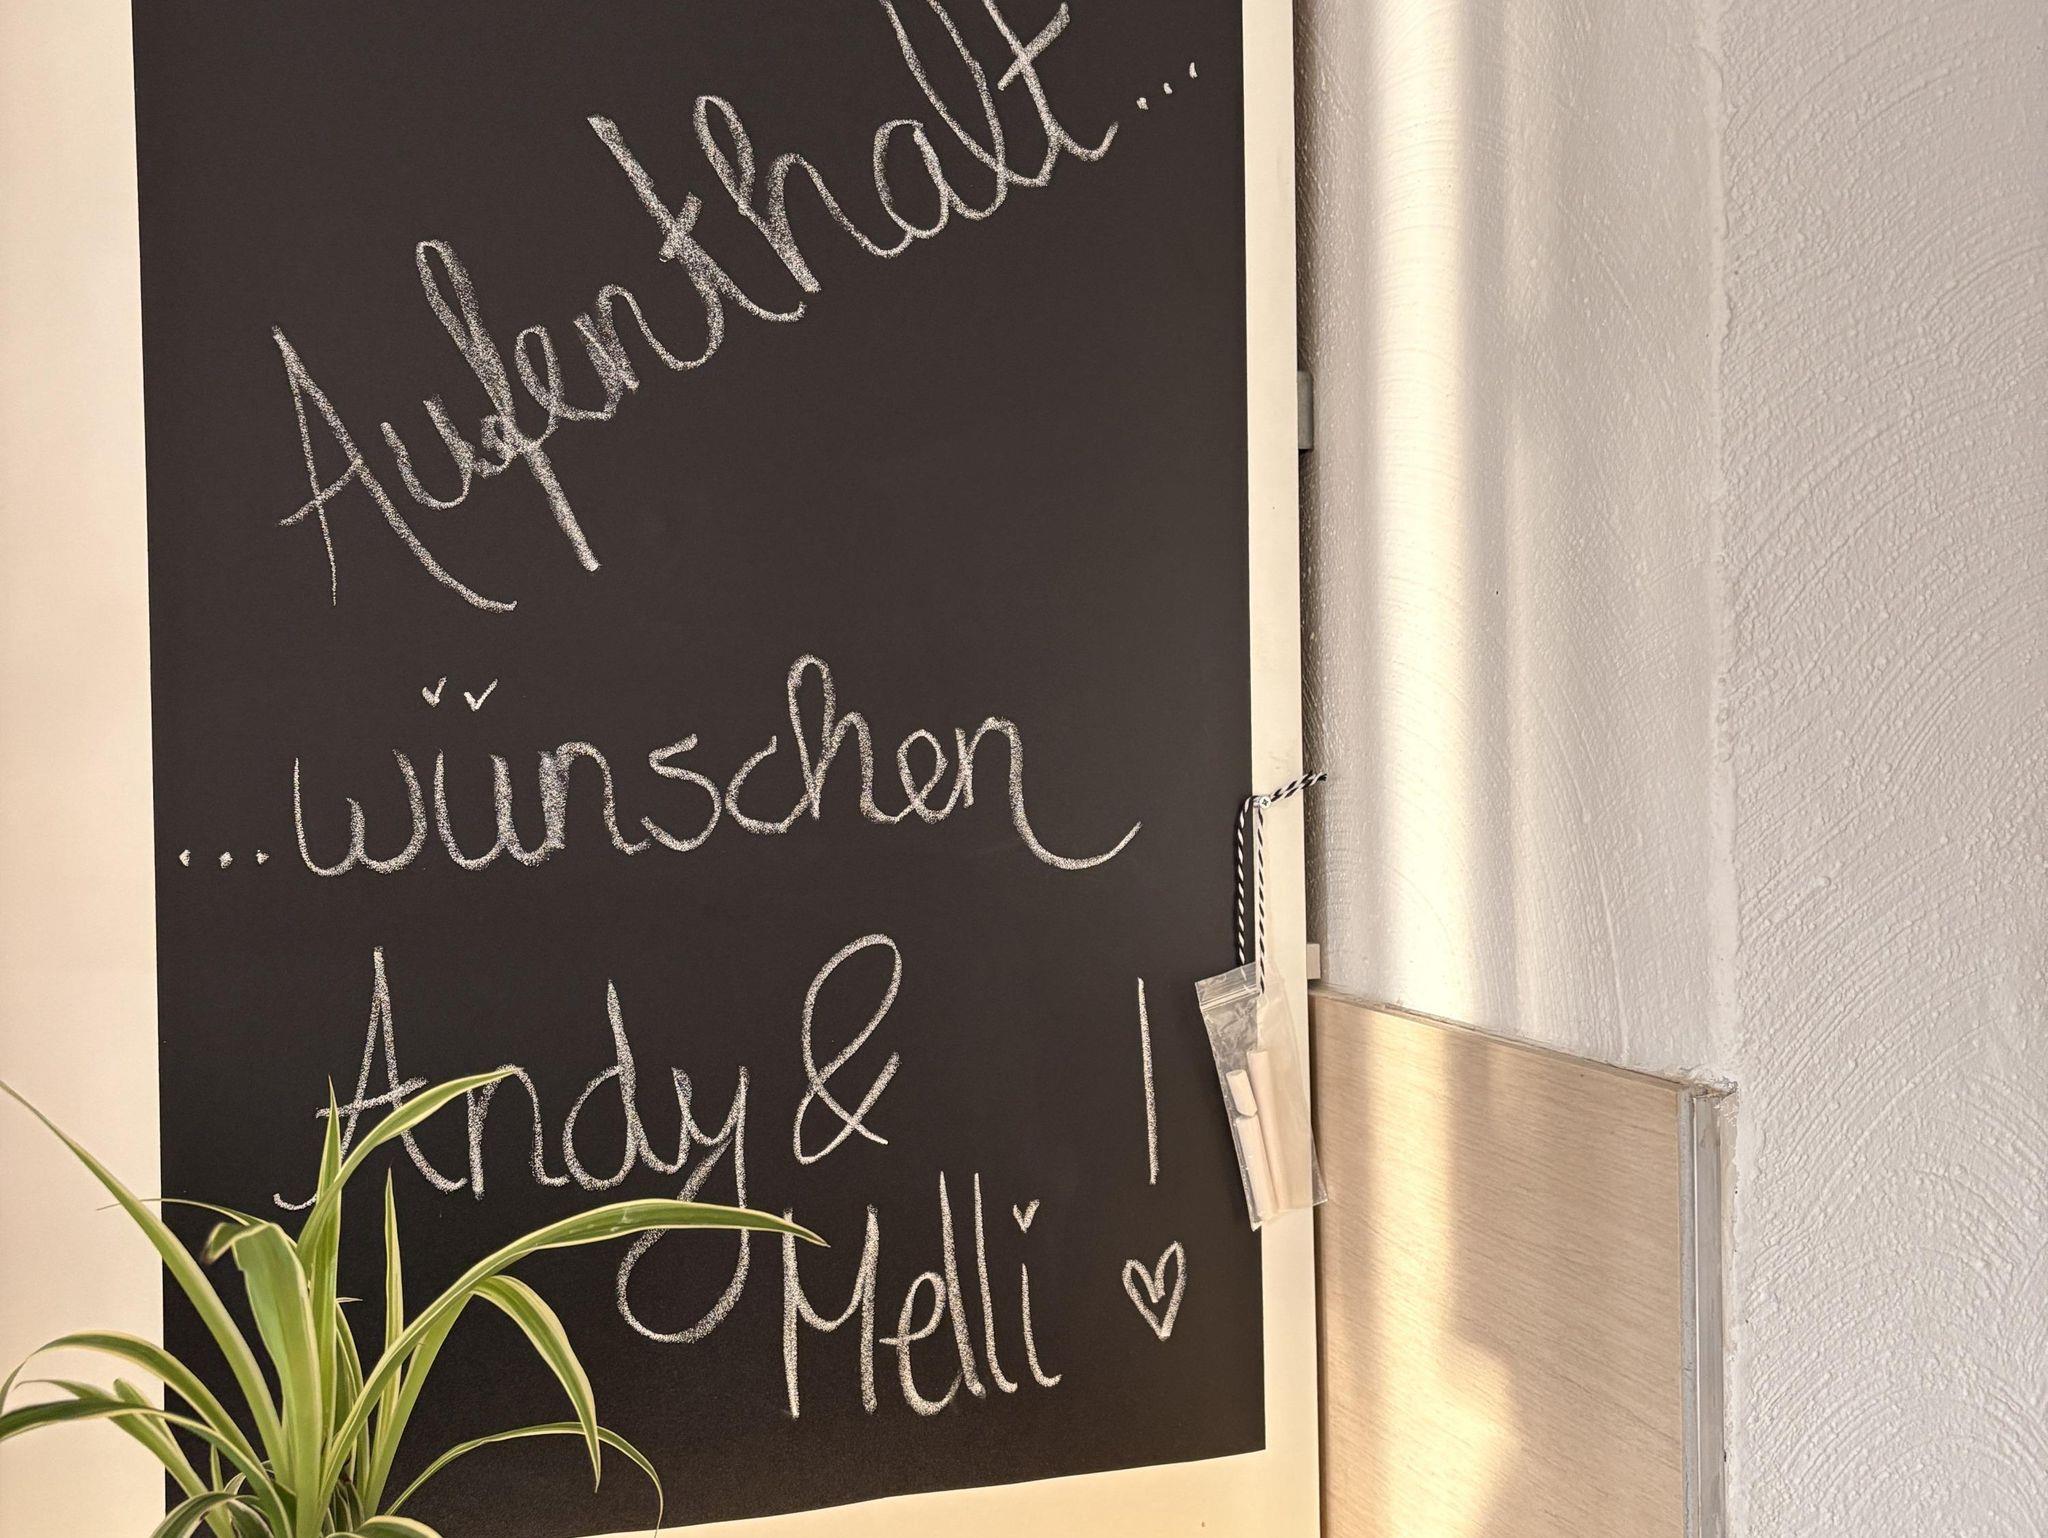 Aufenthalt...
...wünschen
Andy &
Melli ! ♡